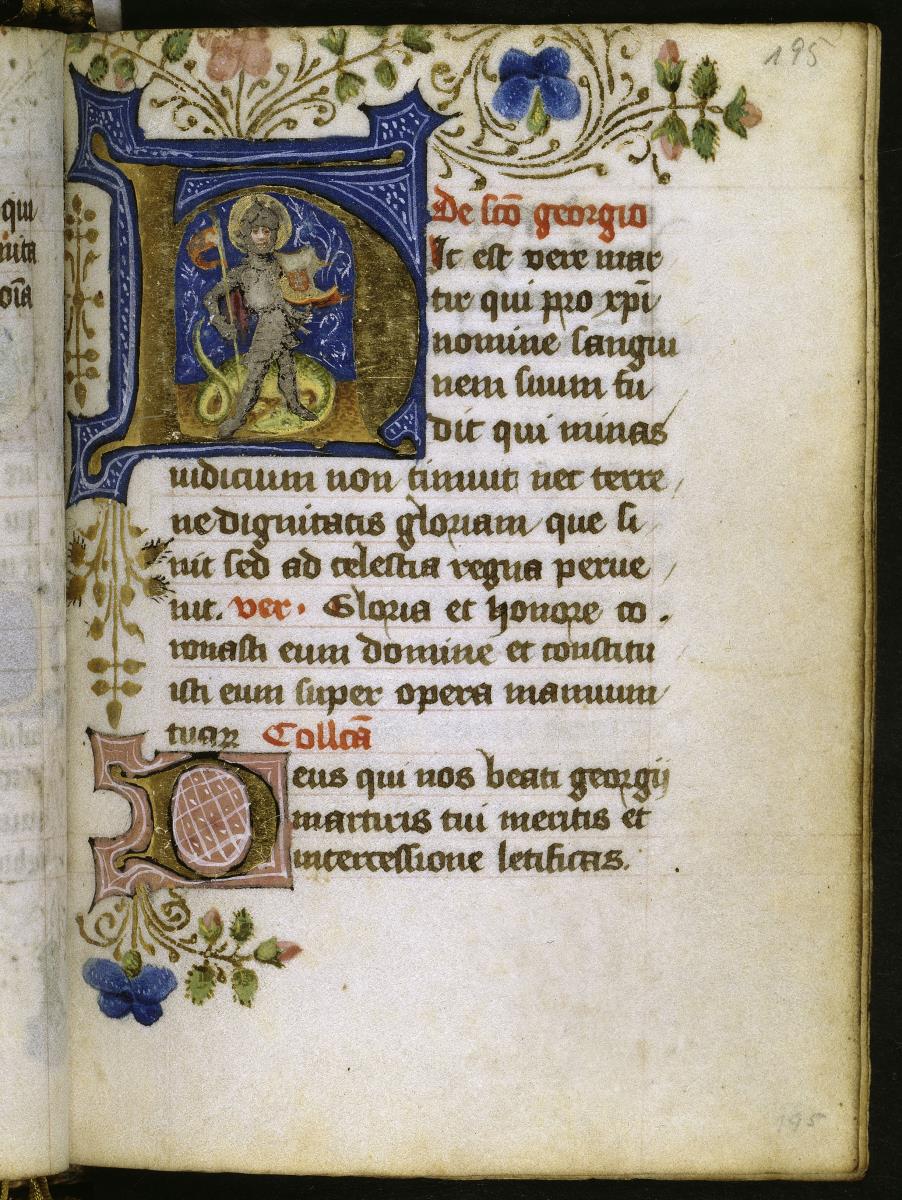 195
De scō georgio
HIc est vere mar
tir qui pro xpī
nomine sangui
nem suum fu
dit qui minas
iudicium non timuit nec terre
ne dignitatis gloriam que si
uit sed ad celestia regna perue
nit. ver. Gloria et honore co
ronasti eum domine et constitu
isti eum super opera manuum
tuaꝝ Collcā
Deus qui nos beati georgij
martiris tui meritis et
intercessione letificas.
195
qui